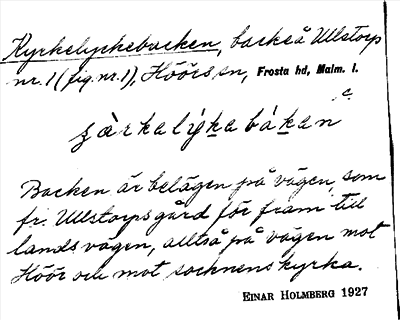 Kyrkelyckebacken, backe å Ullstorp
nr. 1 (fig. nr. 1), Höörs sn, Frosta hd, Malm. l.
c.
Backen är belägen på vägen, som
fr. Ullstorpsgård för fram till
landsvägen, alltså på vägen mot
Höör och mot socknenskyrka.
EINAR HOLMBERG 1927